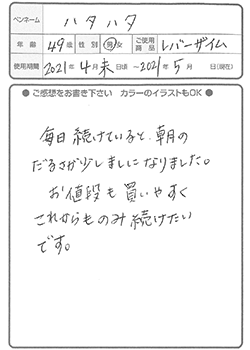 ペンネーム ハタハタ
年齢 49歳 性別 男 女 ご使用商品 レバーザイム
使用期間 2021年 4月 末日頃 ~ 2021年 5月 日(現在)
● ご感想をお書き下さい カラーのイラストもOK ●
毎日続けていると、朝の
だるさが少しましになりました。
お値段も買いやすく
これからものみ続けたい
です。